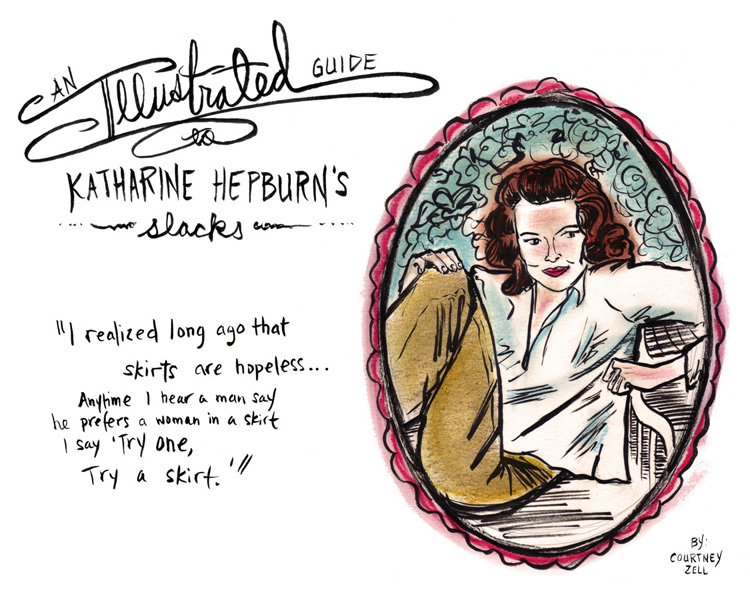 AN Illustrated GUIDE
to
KATHARINE HEPBURN'S
slacks
"I realized long ago that
skirts are hopeless...
Anytime I hear a man say
he prefers a woman in a skirt
I say 'Try one,
Try a skirt.'"
BY:
COURTNEY
ZELL